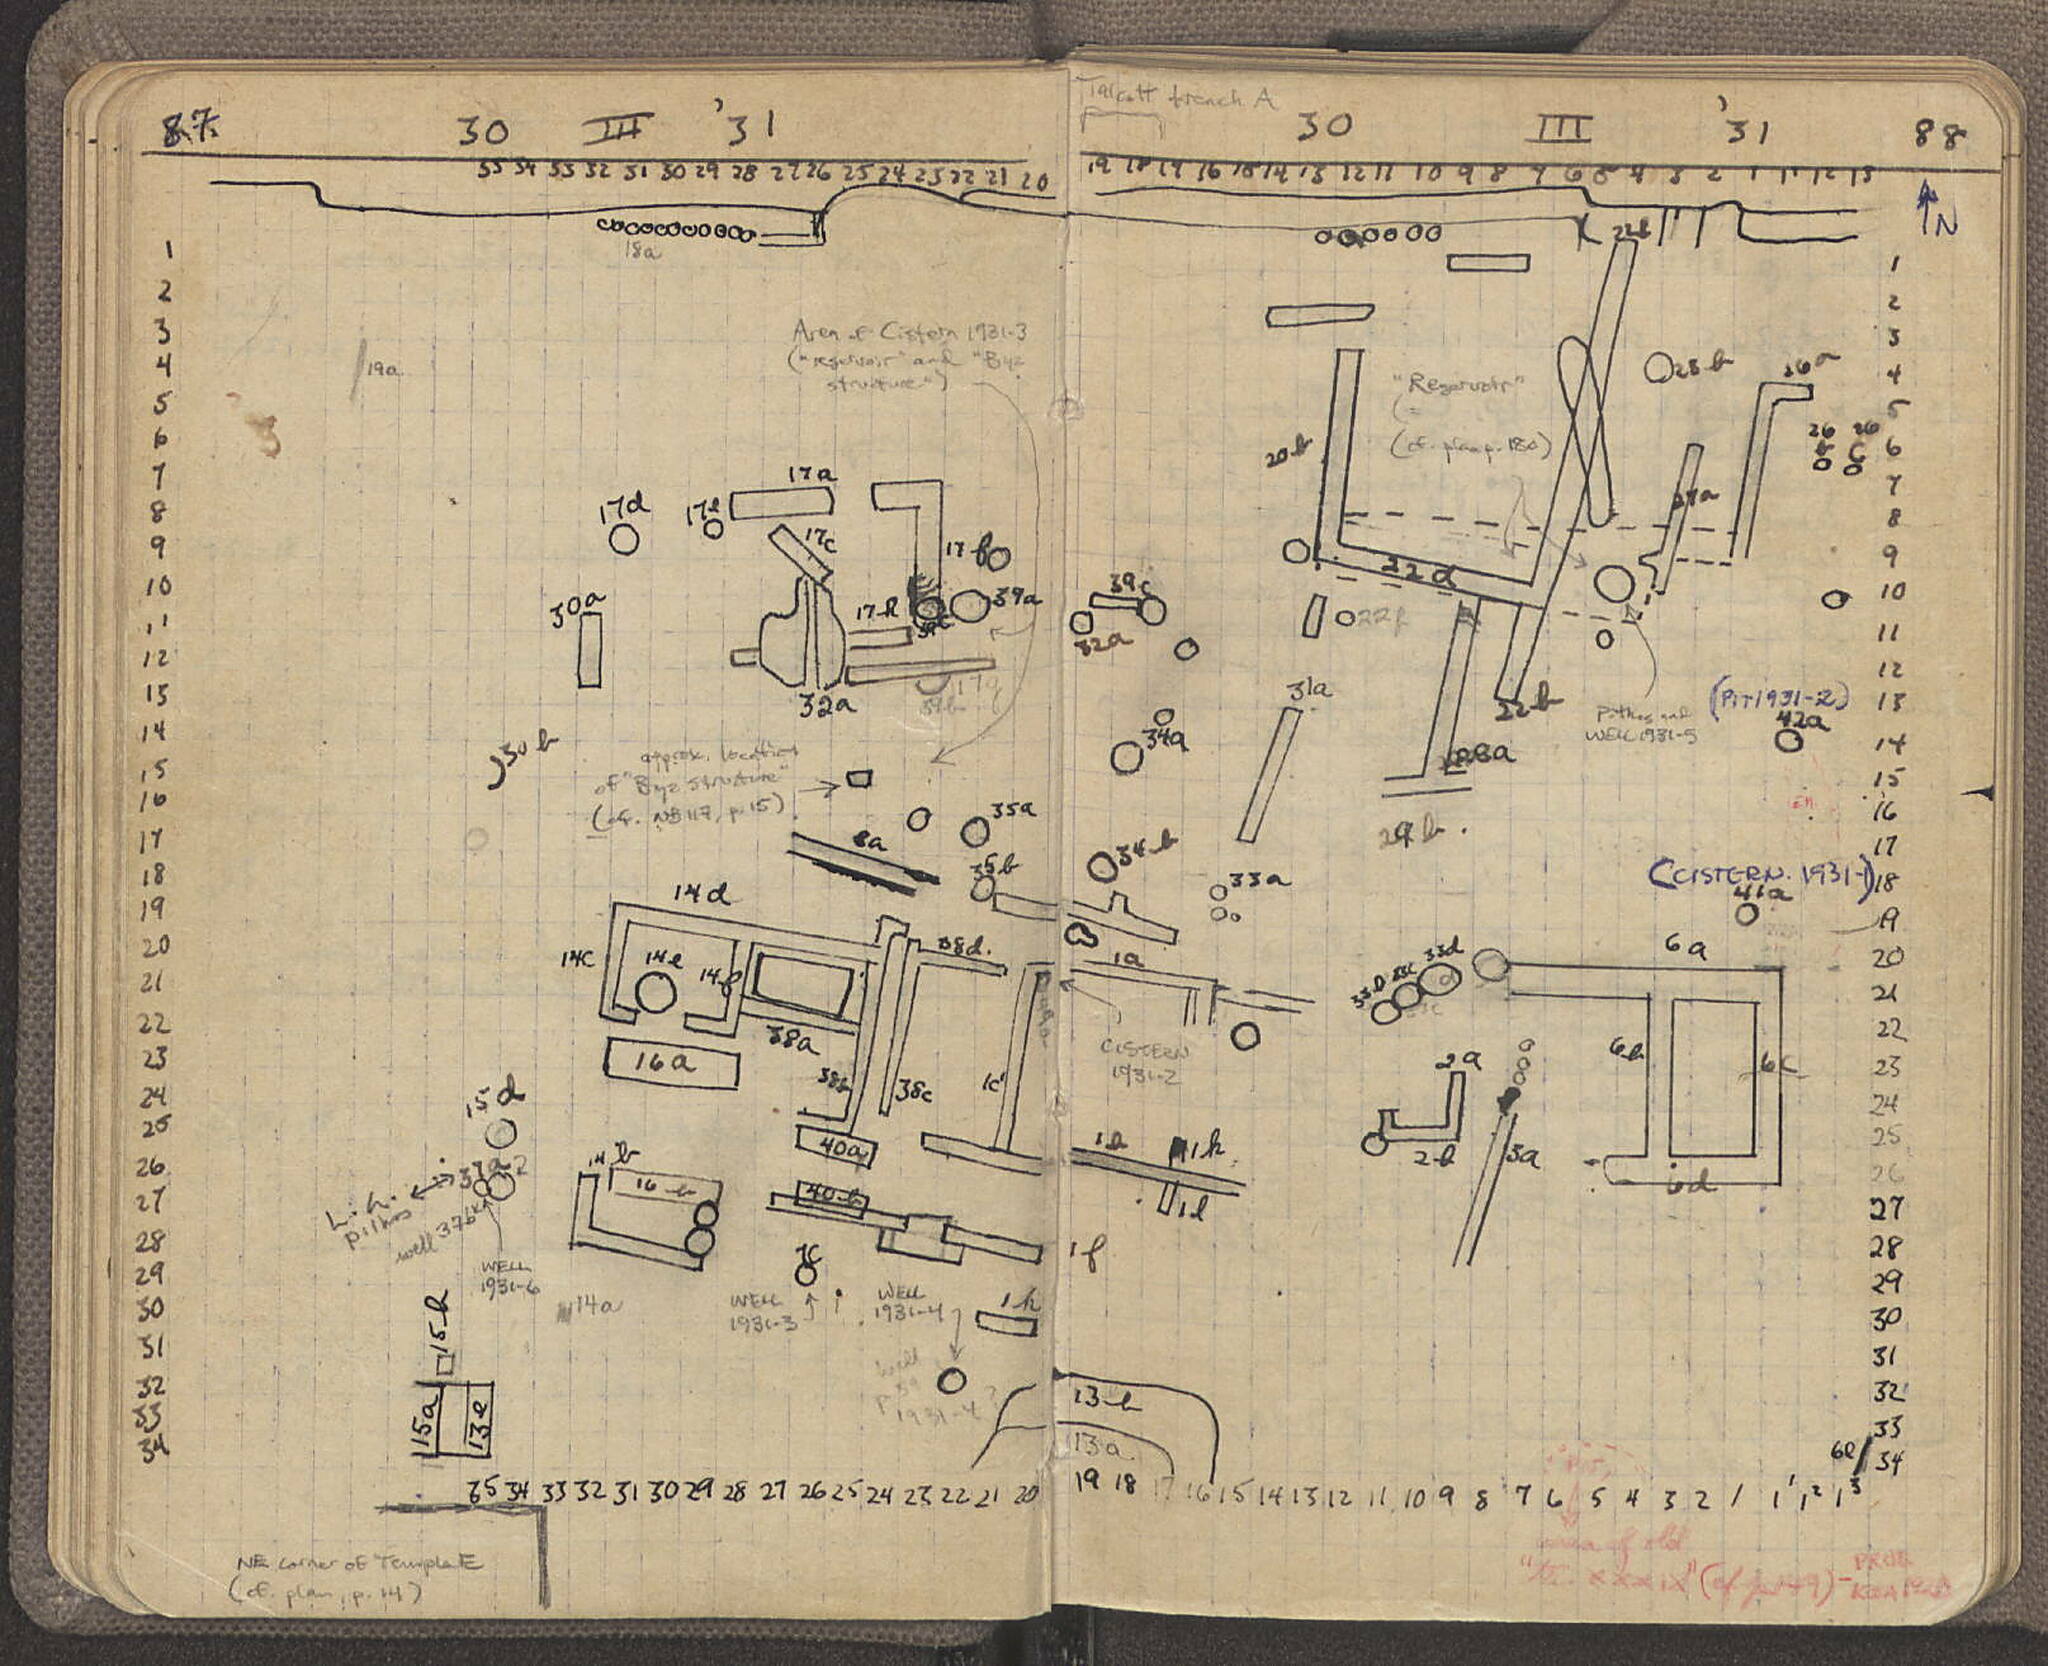 87
30 III '31
35 34 33 32 31 30 29 28 27 26 25 24 23 22 21 20
18a
1
2
3
4
5
6
7
8
9
10
11
12
13
14
15
16
17
18
19
20
21
22
23
24
25
26
27
28
29
30
31
32
33
34
19a
Area of Cistern 1931-3
("reservoir" and "Byz
structure")
17a
17d
17e
17c
17f
39a
30a
17h
32a
17g
39b
30b
approx. location
of "Byz structure"
(cf. NB 117, p. 15)
35a
8a
35b
14d
14c
14e
14f
38d
38a
16a
38b
38c
1c
15d
40a
14b
16b
40b
37a
L.H.
pithos
well 37b
WELL
1931-6
7c
14a
WELL
1931-3
WELL
1931-4
1h
15h
well
1931-4?
15a
13e
35 34 33 32 31 30 29 28 27 26 25 24 23 22 21 20
NE corner of Temple E
(cf. plan, p. 14)
Talcott trench A
30 III '31
88
19 18 17 16 15 14 13 12 11 10 9 8 7 6 5 4 3 2 1 1' 1² 1³
N
22b
1
2
3
4
5
6
7
8
9
10
11
12
13
14
15
16
17
18
19
20
21
22
23
24
25
26
27
28
29
30
31
32
33
34
28b
26a
"Reservoir"
(cf. plan p. 180)
20b
26b
26c
27a
22d
39c
32a
22f
31a
22b
Pithos and
WELL 1931-5
(PIT 1931-2)
42a
34a
28a
29b.
34b
33a
(CISTERN. 1931-1)
41a
1a
33b
33c
33d
6a
CISTERN
1931-2
2a
6b
6c
1e
1k
1l
2b
3a
6d
1f
13b
13a
6e
19 18 17 16 15 14 13 12 11 10 9 8 7 6 5 4 3 2 1 1' 1² 1³
area of old